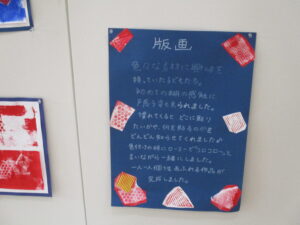 版画
色々な素材に興味を
持っていた子どもたち。
初めての綿の感触に
戸惑う姿も見られました。
慣れてくると どこに貼り
たいかや、何を貼るのかを
どんどん知らせてくれました♪
色付けの時にローラーで"コロコロ～"と
言いながら一緒にしました。
一人一人個性あふれる作品が
完成しました。